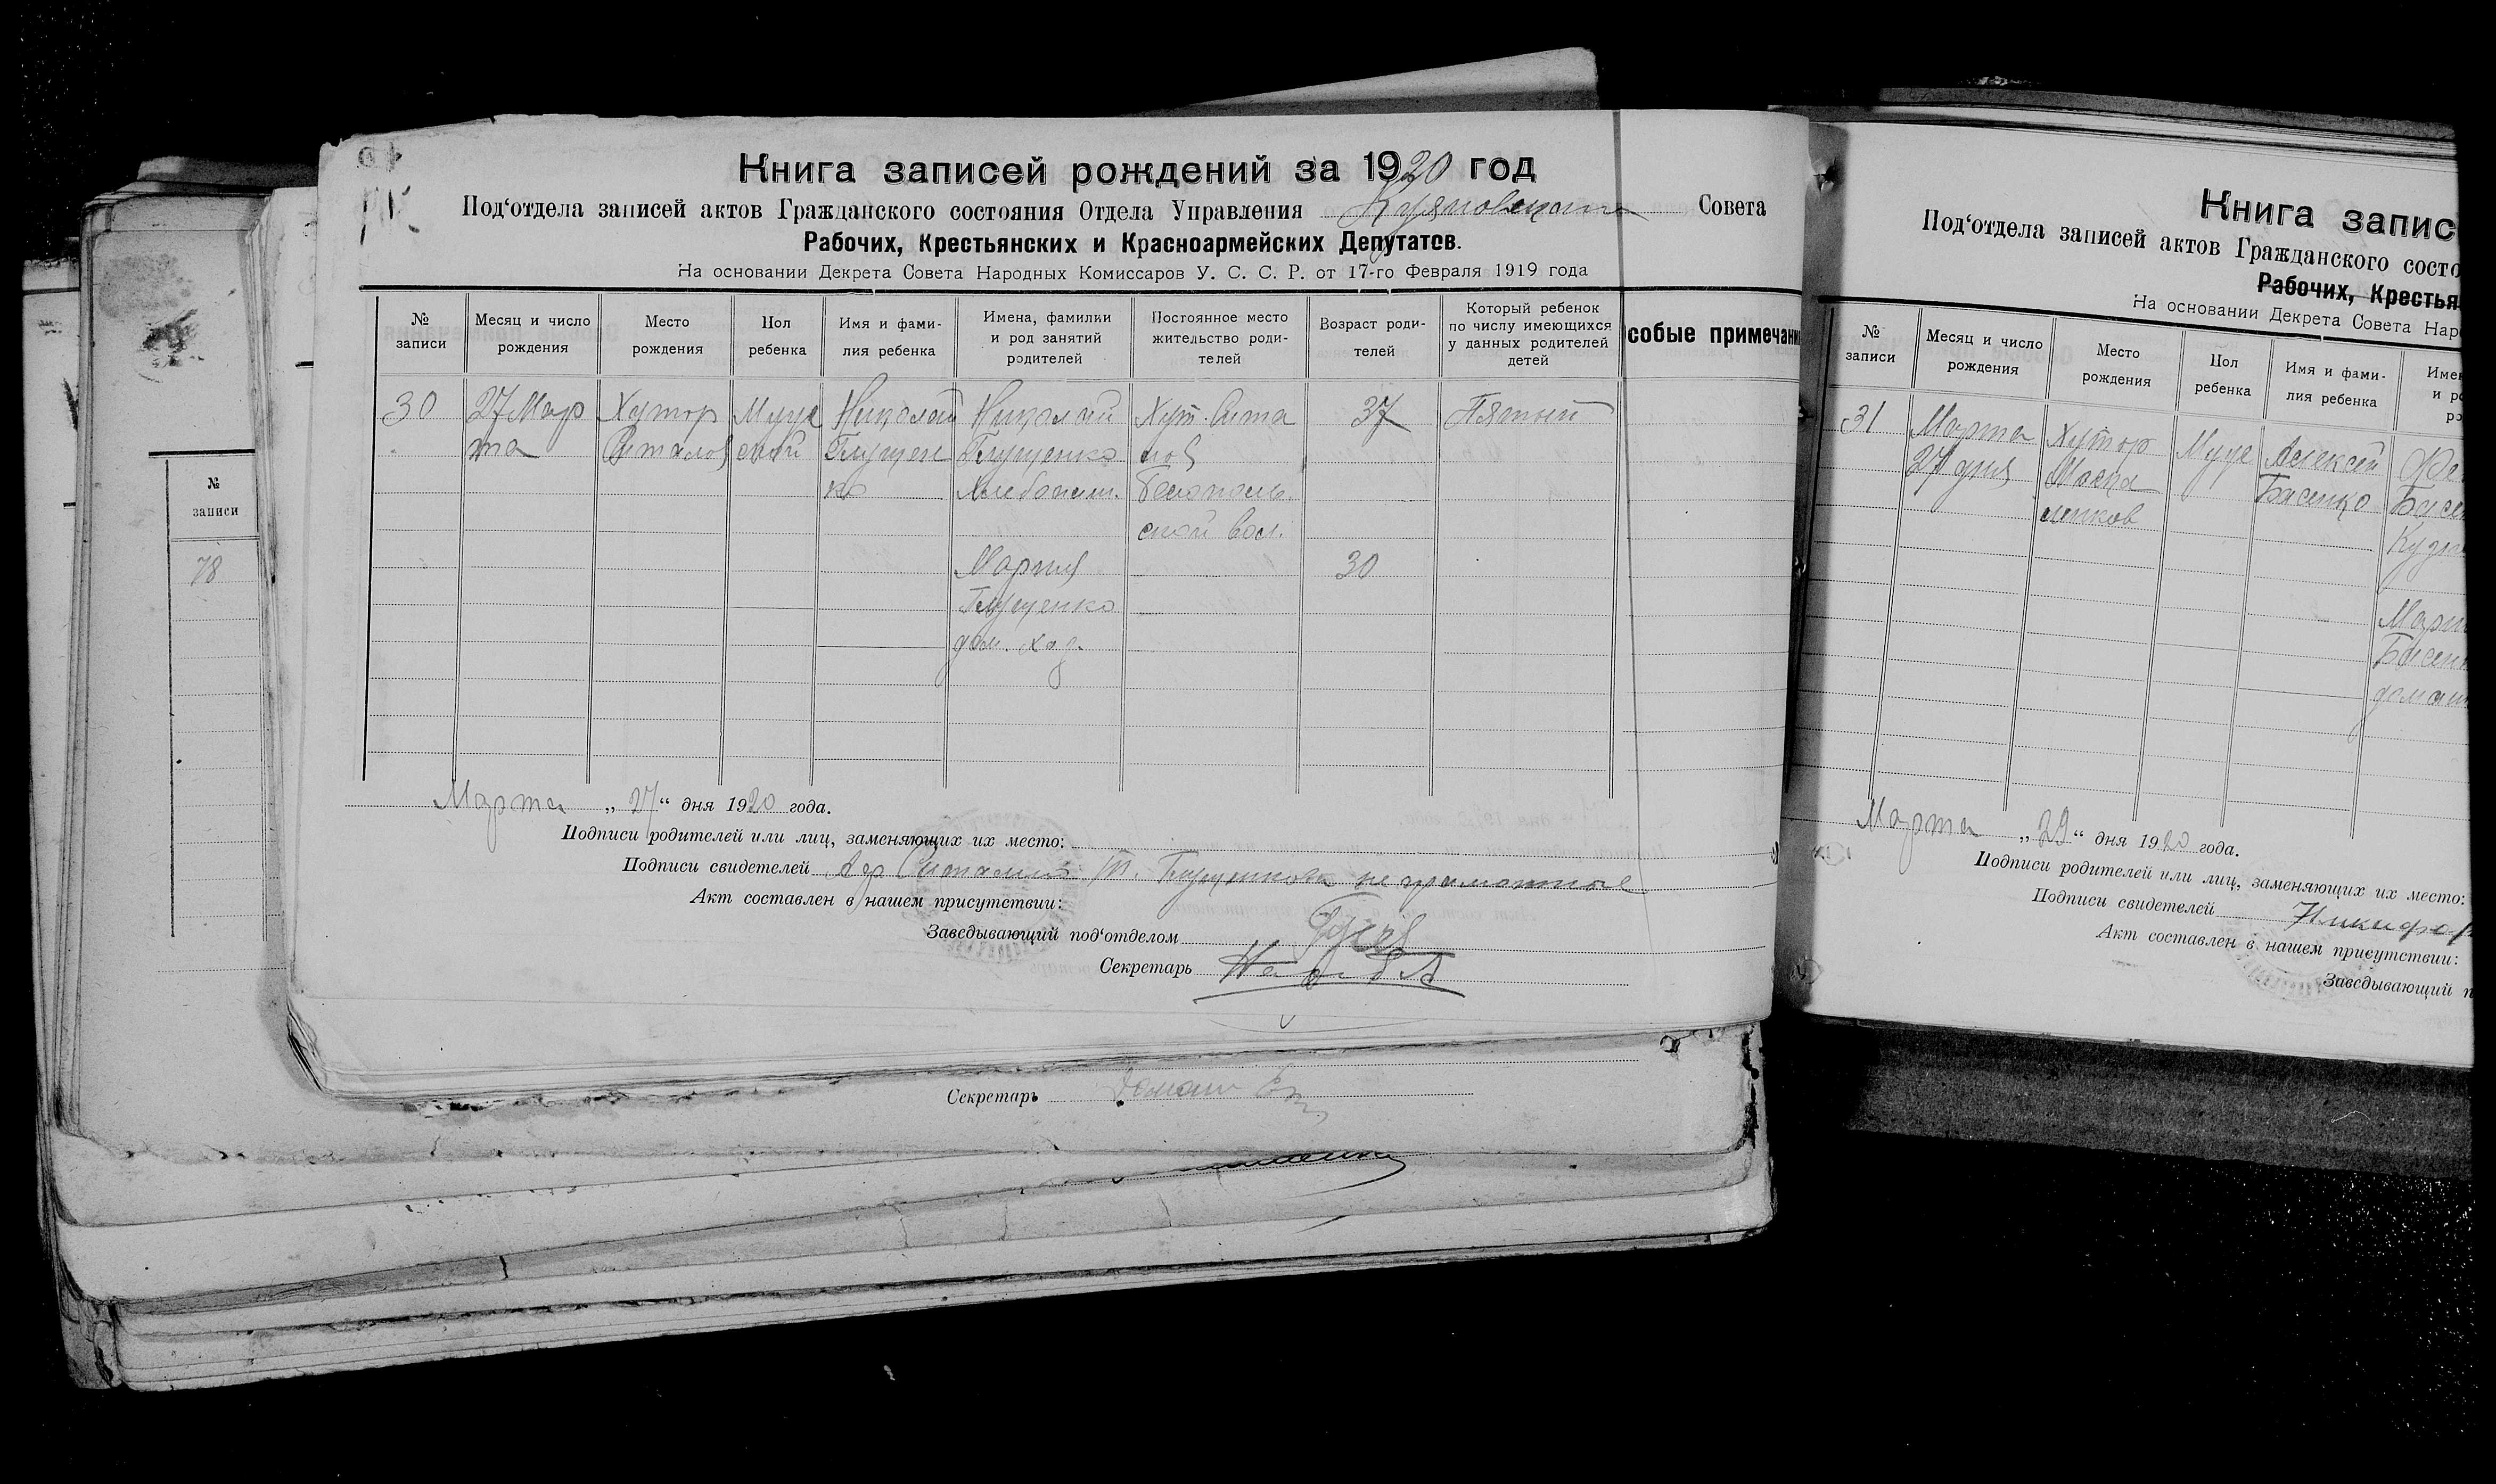 Книга записей рождений за 1920 год
Под‘отдела записей актов Гражданского состояния Отдела Управления Куяновского Совета
Рабочих, Крестьянских и Красноармейских Депутатов.
На основании Декрета Совета Народных Комиссаров У. С. С. Р. от 17-го Февраля 1919 года
№ записи
Месяц и число рождения
Место рождения
Пол ребенка
Имя и фами-
лия ребенка
Имена, фамилии
и род занятий
родителей
Постоянное место
жительство роди-
телей
Возраст роди-
телей
Который ребенок
по числу имеющихся
у данных родителей
детей
собые примечани
30
27 Мар
та
Хутор
Муже
ский
Николай
Глущен
ко
Николай
Глущенко
Хлебопаш.
Хут. Сита
лов
Белополь.
ской вол.
37
Пятый
Мария
Глущенко
дом. хоз.
30
Марта „27“ дня 1920 года.
Подписи родителей или лиц, заменяющих их место:
Подписи свидетелей неграмотные
Акт составлен в нашем присутствии:
Заведывающий под‘отделом
Секретарь
Книга запис
Под‘отдела записей актов Гражданского состо
Рабочих, Крестья
На основании Декрета Совета Нар
№ записи
Месяц и число рождения
Место рождения
Пол ребенка
Имя и фами-
лия ребенка
Имен
и ро
ро
31
Марта
27 дня
Хутор
Моска
ленков
Муже
Алексей
Басенко
Басен
Кузн
Мари
Басен
домаш
Марта „29“ дня 1920 года.
Подписи родителей или лиц, заменяющих их место:
Подписи свидетелей Никифор
Акт составлен в нашем присутствии:
Заведывающий п
№ записи
78
Секретарь